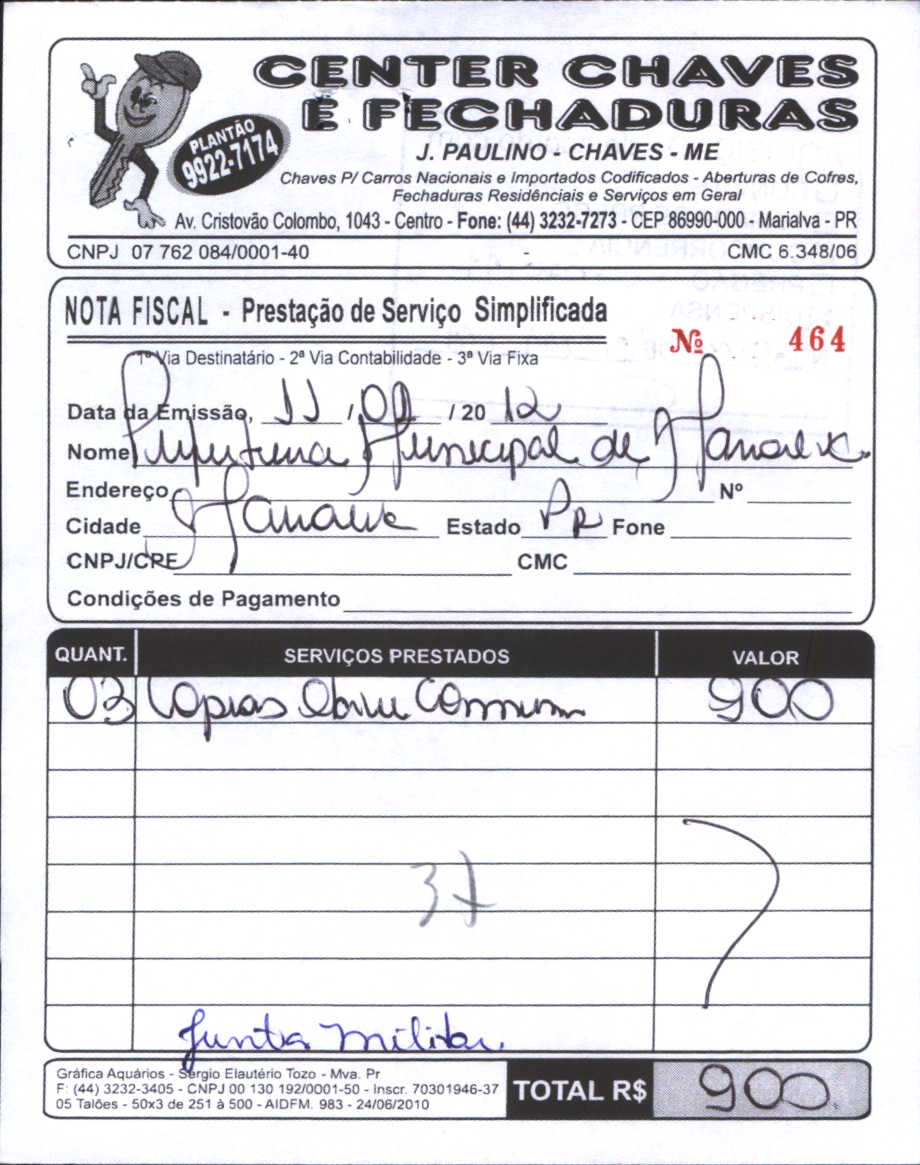 CENTER CHAVES
E FECHADURAS
PLANTÃO
9922-7174
J. PAULINO - CHAVES - ME
Chaves P/ Carros Nacionais e Importados Codificados - Aberturas de Cofres,
Fechaduras Residênciais e Serviços em Geral
Av. Cristovão Colombo, 1043 - Centro - Fone: (44) 3232-7273 - CEP 86990-000 - Marialva - PR
CNPJ 07 762 084/0001-40 CMC 6.348/06
NOTA FISCAL - Prestação de Serviço Simplificada
Nº 464
1ª Via Destinatário - 2ª Via Contabilidade - 3ª Via Fixa
Data da Emissão, 11 / / 20 12
Nome Prefeitura Municipal de Marialva
Endereço Nº
Cidade Marialva Estado Pr Fone
CNPJ/CPF CMC
Condições de Pagamento
QUANT. SERVIÇOS PRESTADOS VALOR
03 Copias Chave Comum 900
37
Junta Militar
Gráfica Aquários - Sérgio Elautério Tozo - Mva. Pr
F: (44) 3232-3405 - CNPJ 00 130 192/0001-50 - Inscr. 70301946-37
05 Talões - 50x3 de 251 à 500 - AIDFM. 983 - 24/06/2010
TOTAL R$ 900